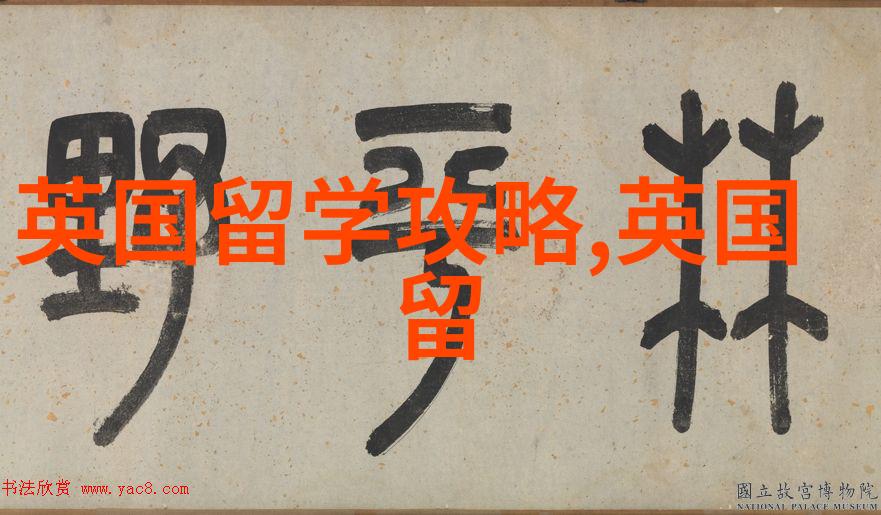 英国留学攻略,英国
留
林 野
书法欣赏 www.yac8.com
國立故宮博物院
NATIONAL PALACE MUSEUM